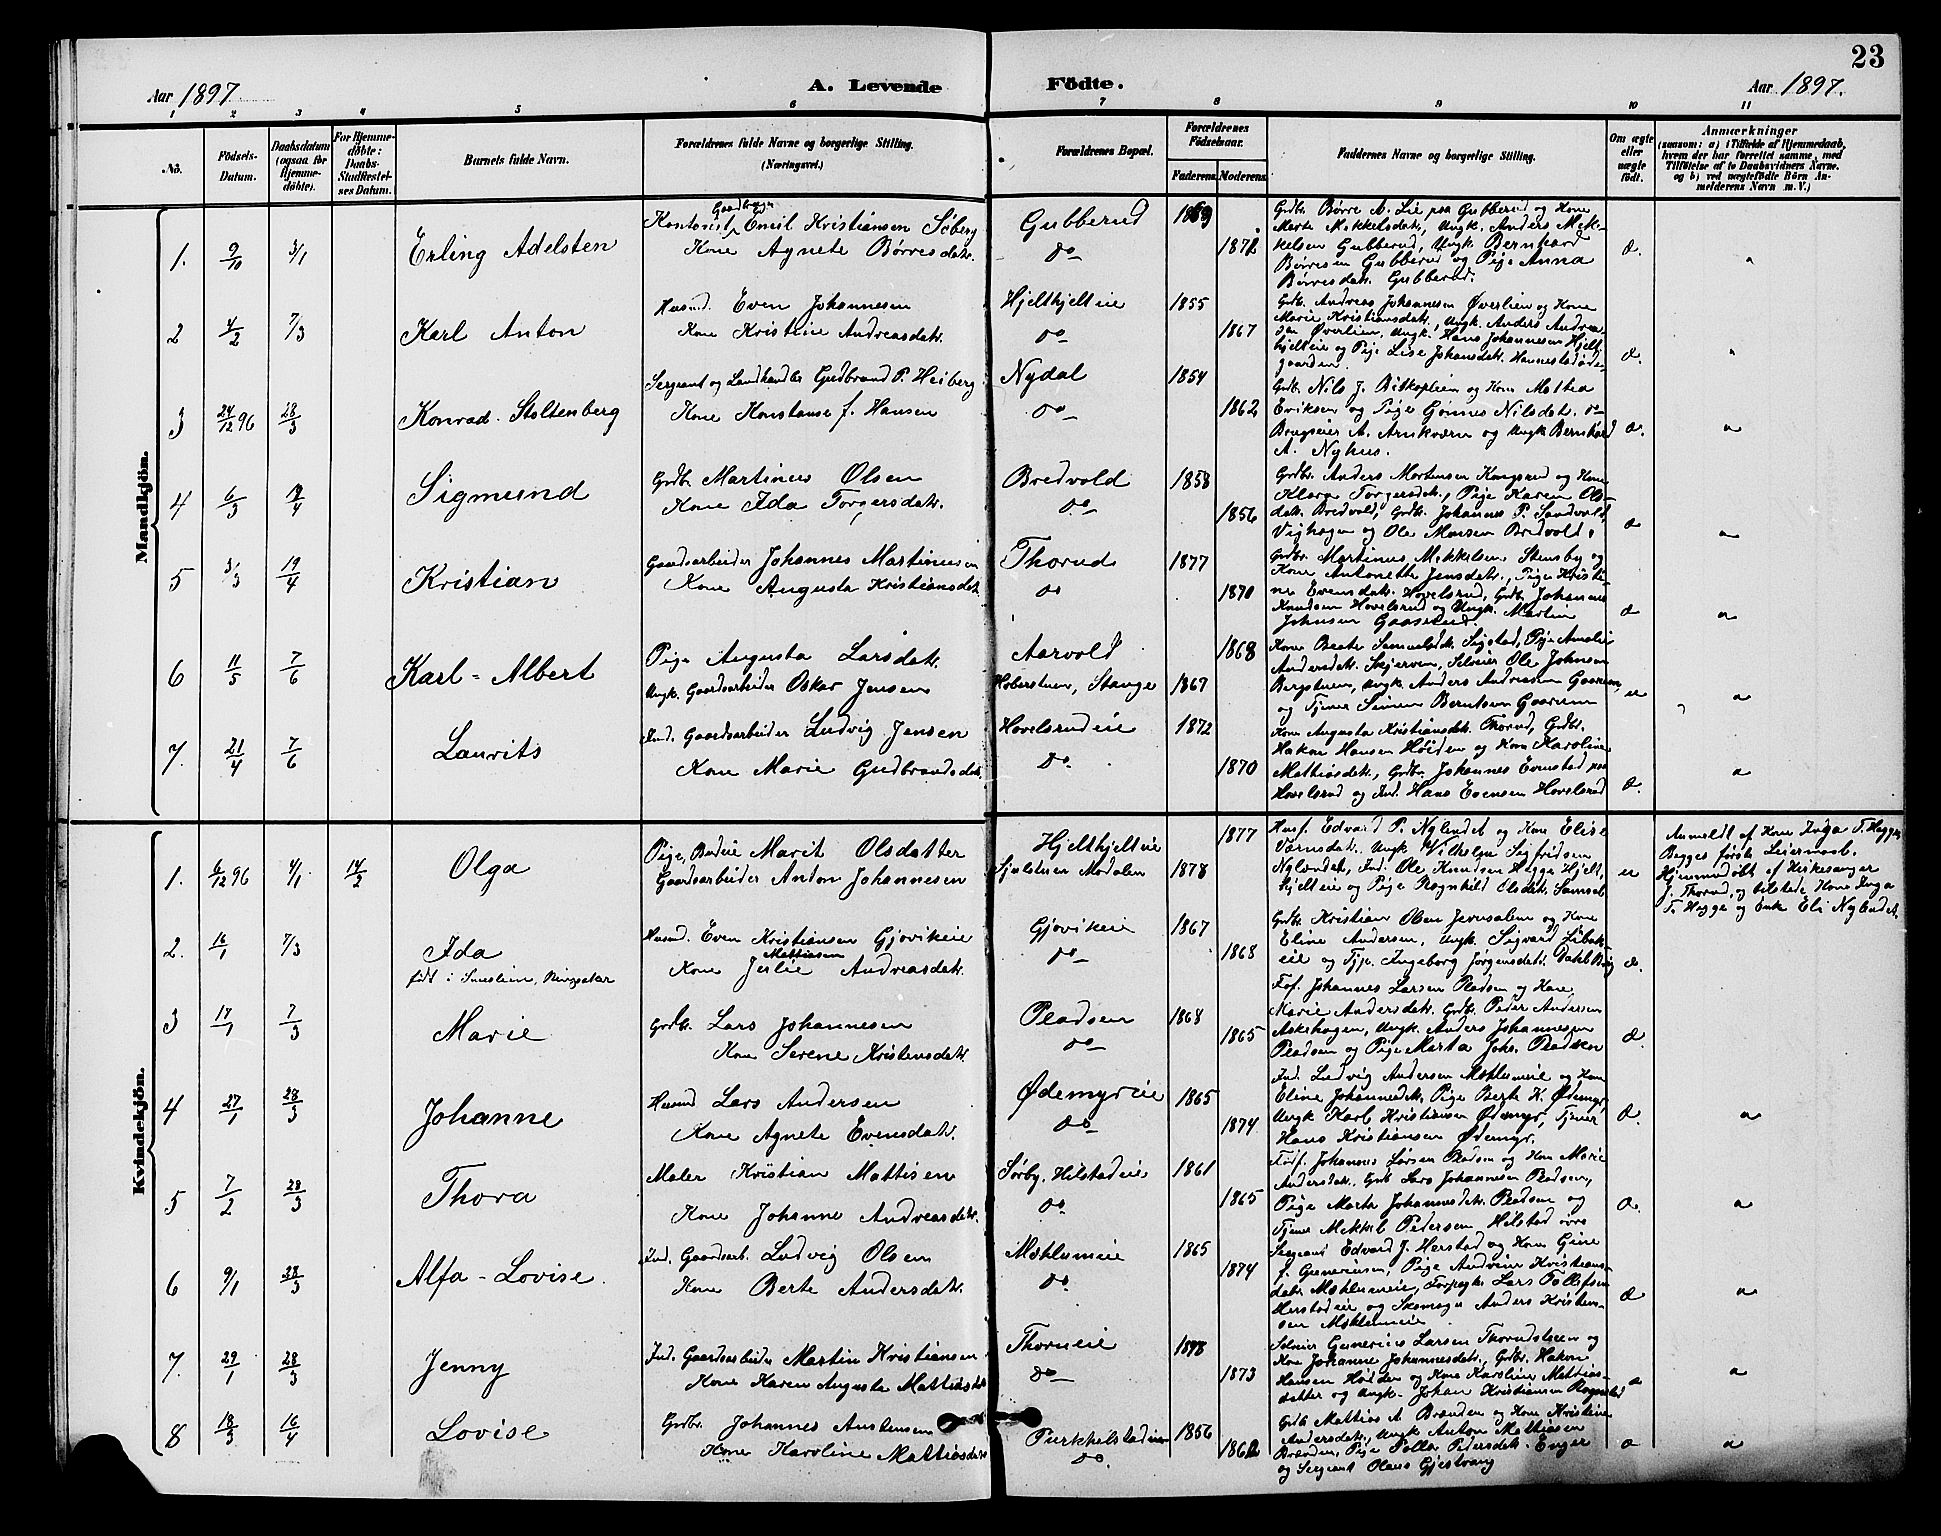 23
Aar 1897. A. Levende Födte. Aar 1897.
1 2 3 4 5 6 7 8 9 10 11
No.
Födsels-Datum.
Daabsdatum (ogsaa for Hjemmedöbte).
For Hjemmedöbte: Daabs-Stadfæstelses Datum.
Barnets fulde Navn.
Forældrenes fulde Navne og borgerlige Stilling. (Næringsvei.)
Forældrenes Bopæl.
Forældrenes Födselsaar.
Faderens. Moderens.
Faddernes Navne og borgerlige Stilling.
Om ægte eller uægte födt.
Anmærkninger
(saasom: a) i Tilfælde af Hjemmedaab, hvem der har forrettet samme, med Tilföielse af to Daabsvidners Navne. og b) ved uægtefödte Börn Anmelderens Navn m. V.)
Mandkjön.
1. 9/10 3/1 Erling Adelsten
Kontorist, Gaardbruger Emil Kristiansen Söberg
Kone Agnete Börresdatr.
Gubberud
do
1872
Grdbr. Börre A. Lie paa Gubberud og Kone
Marte Mikkelsdatr., Ungk. Anders Mik-
kelsen Gubberud, Ungk. Bernhard
Börresen Gubberud og Pige Anna
Börresdatr. Gubberud.
2 4/2 7/3 Karl Anton
Husmd. Even Johannesen
Kone Kristine Andreasdatr.
Hjelthjelteie
do
1855
1867
Grdb. Andreas Johannesen Överlien og Kone
Marie Kristiansdatr., Ungk. Anders Andrea-
sen Överlien, Ungk. Hans Johannesen Hjelt-
hjelteie og Pige Lise Johansdatr.
3 24/12 96 28/3 Konrad Stoltenberg
Sergeant og Landhandler Gudbrand P. Heiberg
Kone Konstanse f. Hansen
Nydal
do
1854
1862
Grdb. Nils J. Biskoplien og Kone Mathea
Eriksen og Pige Gönnes Nilsdatr. do
Brugseier A. Arnkværn og Ungk. Bernhard
A. Nyhus.
4 6/3 Sigmund
Grdbr. Martinus Olsen
Kone Ida Torgersdatr.
Bredvold
do
1858
1856
Grdbr. Anders Mortensen Kongsrud og Kone
Klara Torgersdatr., Pige Karen Ols-
datr. Bredvold, Grdbr. Johannes P. Sandvold,
Vighagen og Ole Monsen Bredvold.
5 3/3 19/4 Kristian
Gaardsarbeider Johannes Martinusen
Kone Augusta Kristiansdatr.
Thorud
do
1877
1870
Grdbr. Martinus Mikkelsen Stensby og
Kone Antonette Jensdatr., Pige Kristi-
ne Evensdatr. Hovelsrud, Grdb. Johannes
Knudsen Hovelsrud og Ungk. Martin
Johnsen Gaaserud.
6 11/5 7/6 Karl-Albert
Pige Augusta Larsdatr.
Ungk. Gaardsarbeider Oskar Jensen
Aarvold
Stange
1868
1867
Kone Beate Samuelsdtr. Sigstad, Pige Amalie
Andersdatr. Skjerven, Selveier Ole Johnsen
Bergstuen, Ungk. Anders Andreasen Gaaren,
og Tjener Simen Berntsen Gaaren
7. 21/4 7/6 Laurits
Ind. Gaardsarbeider Ludvig Jensen
Kone Marie Gudbrandsdatr.
Hovelsrudeie
do
1872
1870
Kone Augusta Kristiansdatr. Thorud, Grdbr.
Hakon Hansen Höiden og Kone Karoline
Mathiasdatr., Grdbr. Johannes Evenstad paa
Hovelsrud og Ind. Hans Evensen Hovelsrud
Kvindekjön.
1. 6/12 96 4/1 14/2 Olga
Pige, Budeie Marit Olsdatter
Gaardsarbeider Anton Johannesen
Hjelthjelteie
1877
1878
Husf. Edvard P. Nylendet og Kone Elise
Ungk. Vilhelm Sigfridsen
Nylændet, Ind. Ole Knudsen Hegge Hjelt-
hjelteie og Pige Ragnhild Olsdatr.
Anmeldt af Kone Inga T. Hegge,
Begges förste Leiermaal.
Hjemmedöbt af Kirkesanger
J. Thorud, og tilstede Kone Inga
T. Hegge og Enke Eli Nylendet
2. 16/1 7/3 Ida
födt i Ringsaker
Husmd. Even Kristiansen Gjövikeie
Kone Julie Mattiasen Andreasdatr.
Gjövikeie
do
1867
1868
Grdbr. Kristian Olsen Jerusalem og Kone
Eline Andersen, Ungk. Sigvard
eie og Tjp. Ingeborg Jörgensdatr.
3 17/1 7/3 Marie
Grdb. Lars Johannesen
Kone Serene Kristensdatr.
Pladsen
do
1868
1865
Föf. Johannes Larsen Pladsen og Kone
Marie Andersdatr., Grdb. Peder Andersen
Askehagen, Ungk. Anders Johannesen
Pladsen og Pige Marta Johs. Pladsen
4 27/1 28/3 Johanne
Husmd Lars Andersen
Kone Agnete Evensdatr.
Ödemyreie
do
1865
1874
Ind. Ludvig Andersen Möklumeie og Kone
Eline Johannesdtr. Pige Berte K. Ödemyr,
Ungk Karl Kristiansen Ödemyr, Tjener
Hans Kristiansen Ödemyr.
5 7/2 28/3 Thora
Maler Kristian Mattisen
Kone Johanne Andreasdatr.
Sörby, Hilstadeie
do
1861
1865
Födf. Johannes Larsen Pladsen og Kone Marie
Andersdtr., Grdb Lars Johannesen Pladsen,
Pige Marta Johannesdatr. Pladsen og
Tjener Mikkel Pedersen, Hilstad övre
6 9/1 28/3 Alfa-Lovise.
Ind. Gaardsarb. Ludvig Olsen
Kone Berte Andersdatr.
Möklumeie
do
1865
1874
Sergeant Edvard J. Herstad og Kone Gine
f. Gunerius­en, Pige Andrine Kristians-
datr. Möklumeie, Lars Tollefsen
Herstadeie og Skomager Anders Kristen-
sen Möklumeie
7. 29/1 28/3 Jenny
Ind. Gaardsarbeider Martin Kristiansen
Kone Karen Augusta Mattiasdatr
Thorudeie
do
1873
Selveier Gunerius Larsen Thorudstuen og
Kone Johanne Johannesdatr., Grdbr. Hakon
Hansen Höiden og Kone Karoline Mattias-
datter og Ungk. Johan Kristiansen Rognstad
8 18/3 16/4 Lovise
Grdbr. Johannes Austensen
Kone Karoline Mattiasdatr
Purkkelstadeie
do.
1856
1862
Grdb Mattias A. Brænden og Kone Kristine
Andersdtr., Ungk Anton Mattiasen
Brænden, Pige Polla Pedersdatr. Enger
og Sergeant Olaus Gjestvang